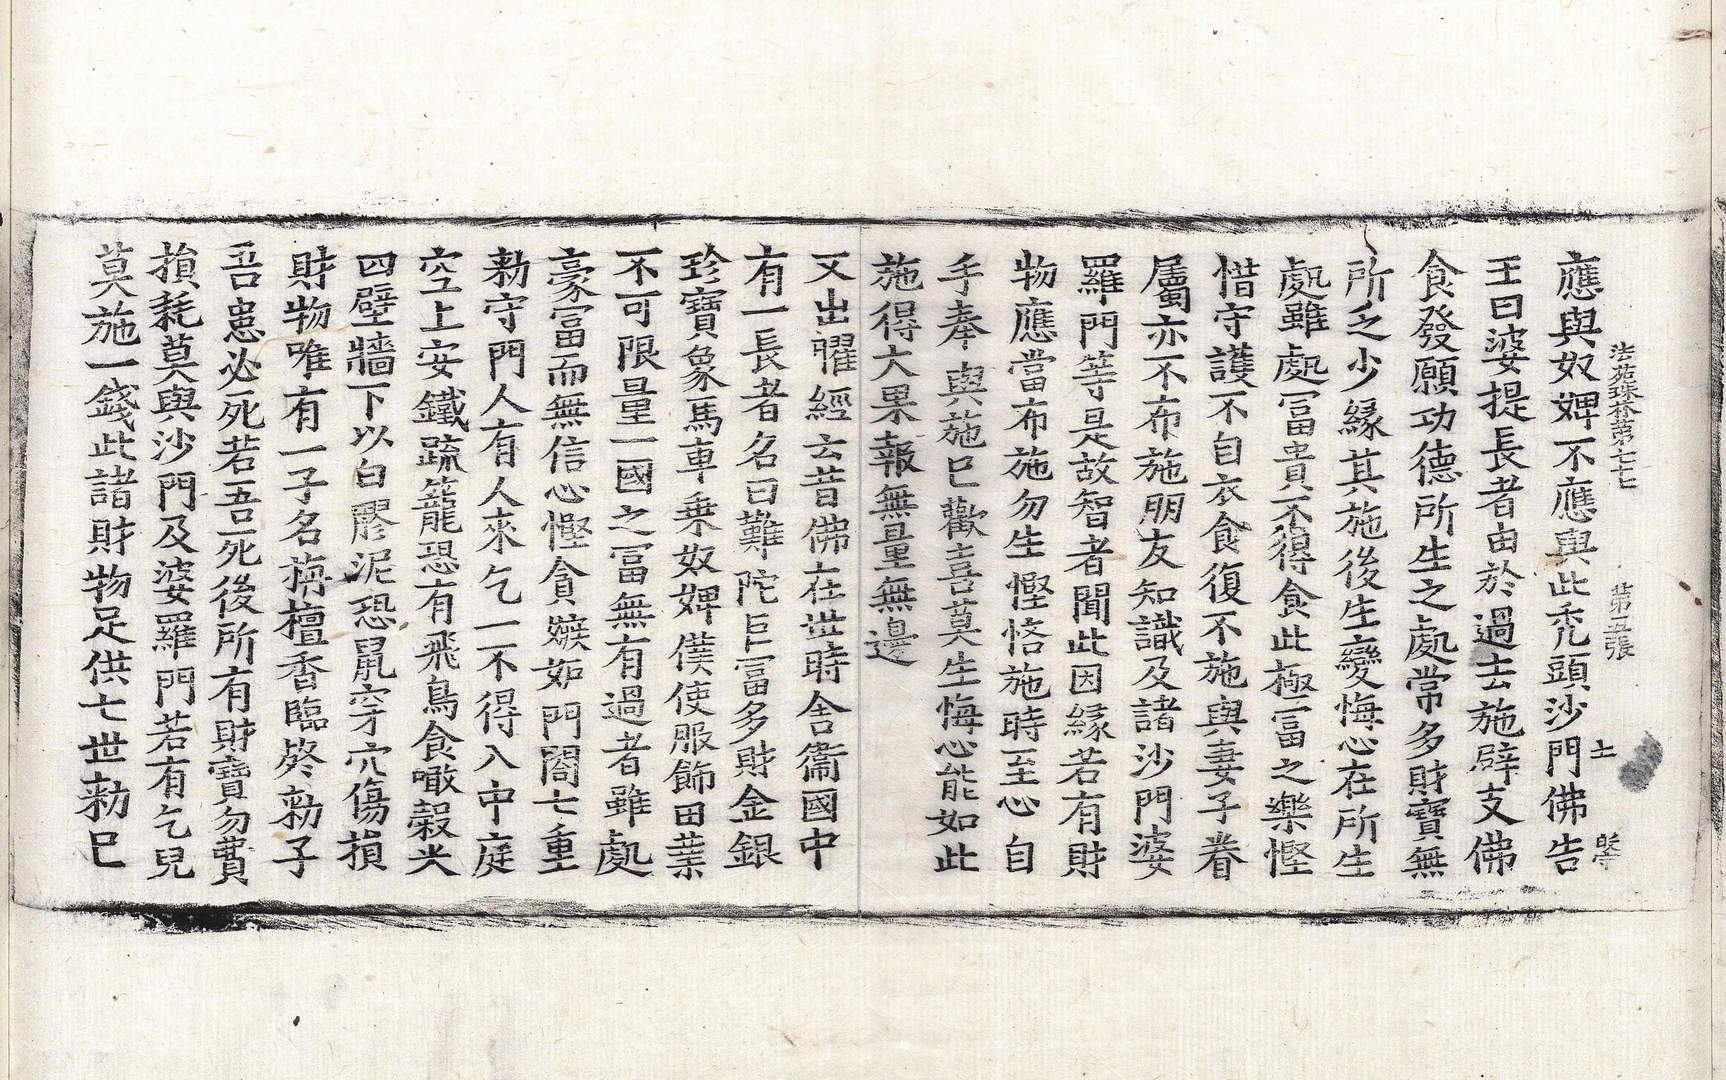 法苑珠林第七七 第五張 土
應與奴婢不應與此禿頭沙門佛告
王曰婆提長者由於過去施辟支佛
食發願功德所生之處常多財寶無
所乏少緣其施後生變悔心在所生
處雖處冨貴不得食此極冨之樂慳
惜守護不自衣食復不施與妻子眷
屬亦不布施朋友知識及諸沙門婆
羅門等是故智者聞此因緣若有財
物應當布施勿生慳悋施時至心自
手奉與施已歡喜莫生悔心能如此
施得大果報無量無邊
又出曜經云昔佛在世時舍衞國中
有一長者名曰難陀巨冨多財金銀
珍寶象馬車乗奴婢僕使服飾田業
不可限量一國之冨無有過者雖處
豪冨而無信心慳貪嫉妬門閤七重
勑守門人有人來乞一不得入中庭
空上安鐵疏籠恐有飛鳥食噉穀米
四壁牆下以白膠泥恐鼠穿穴傷損
財物唯有一子名栴檀香臨終勑子
吾患必死若吾死後所有財寶勿費
損耗莫與沙門及婆羅門若有乞兒
莫施一錢此諸財物足供七世勑已